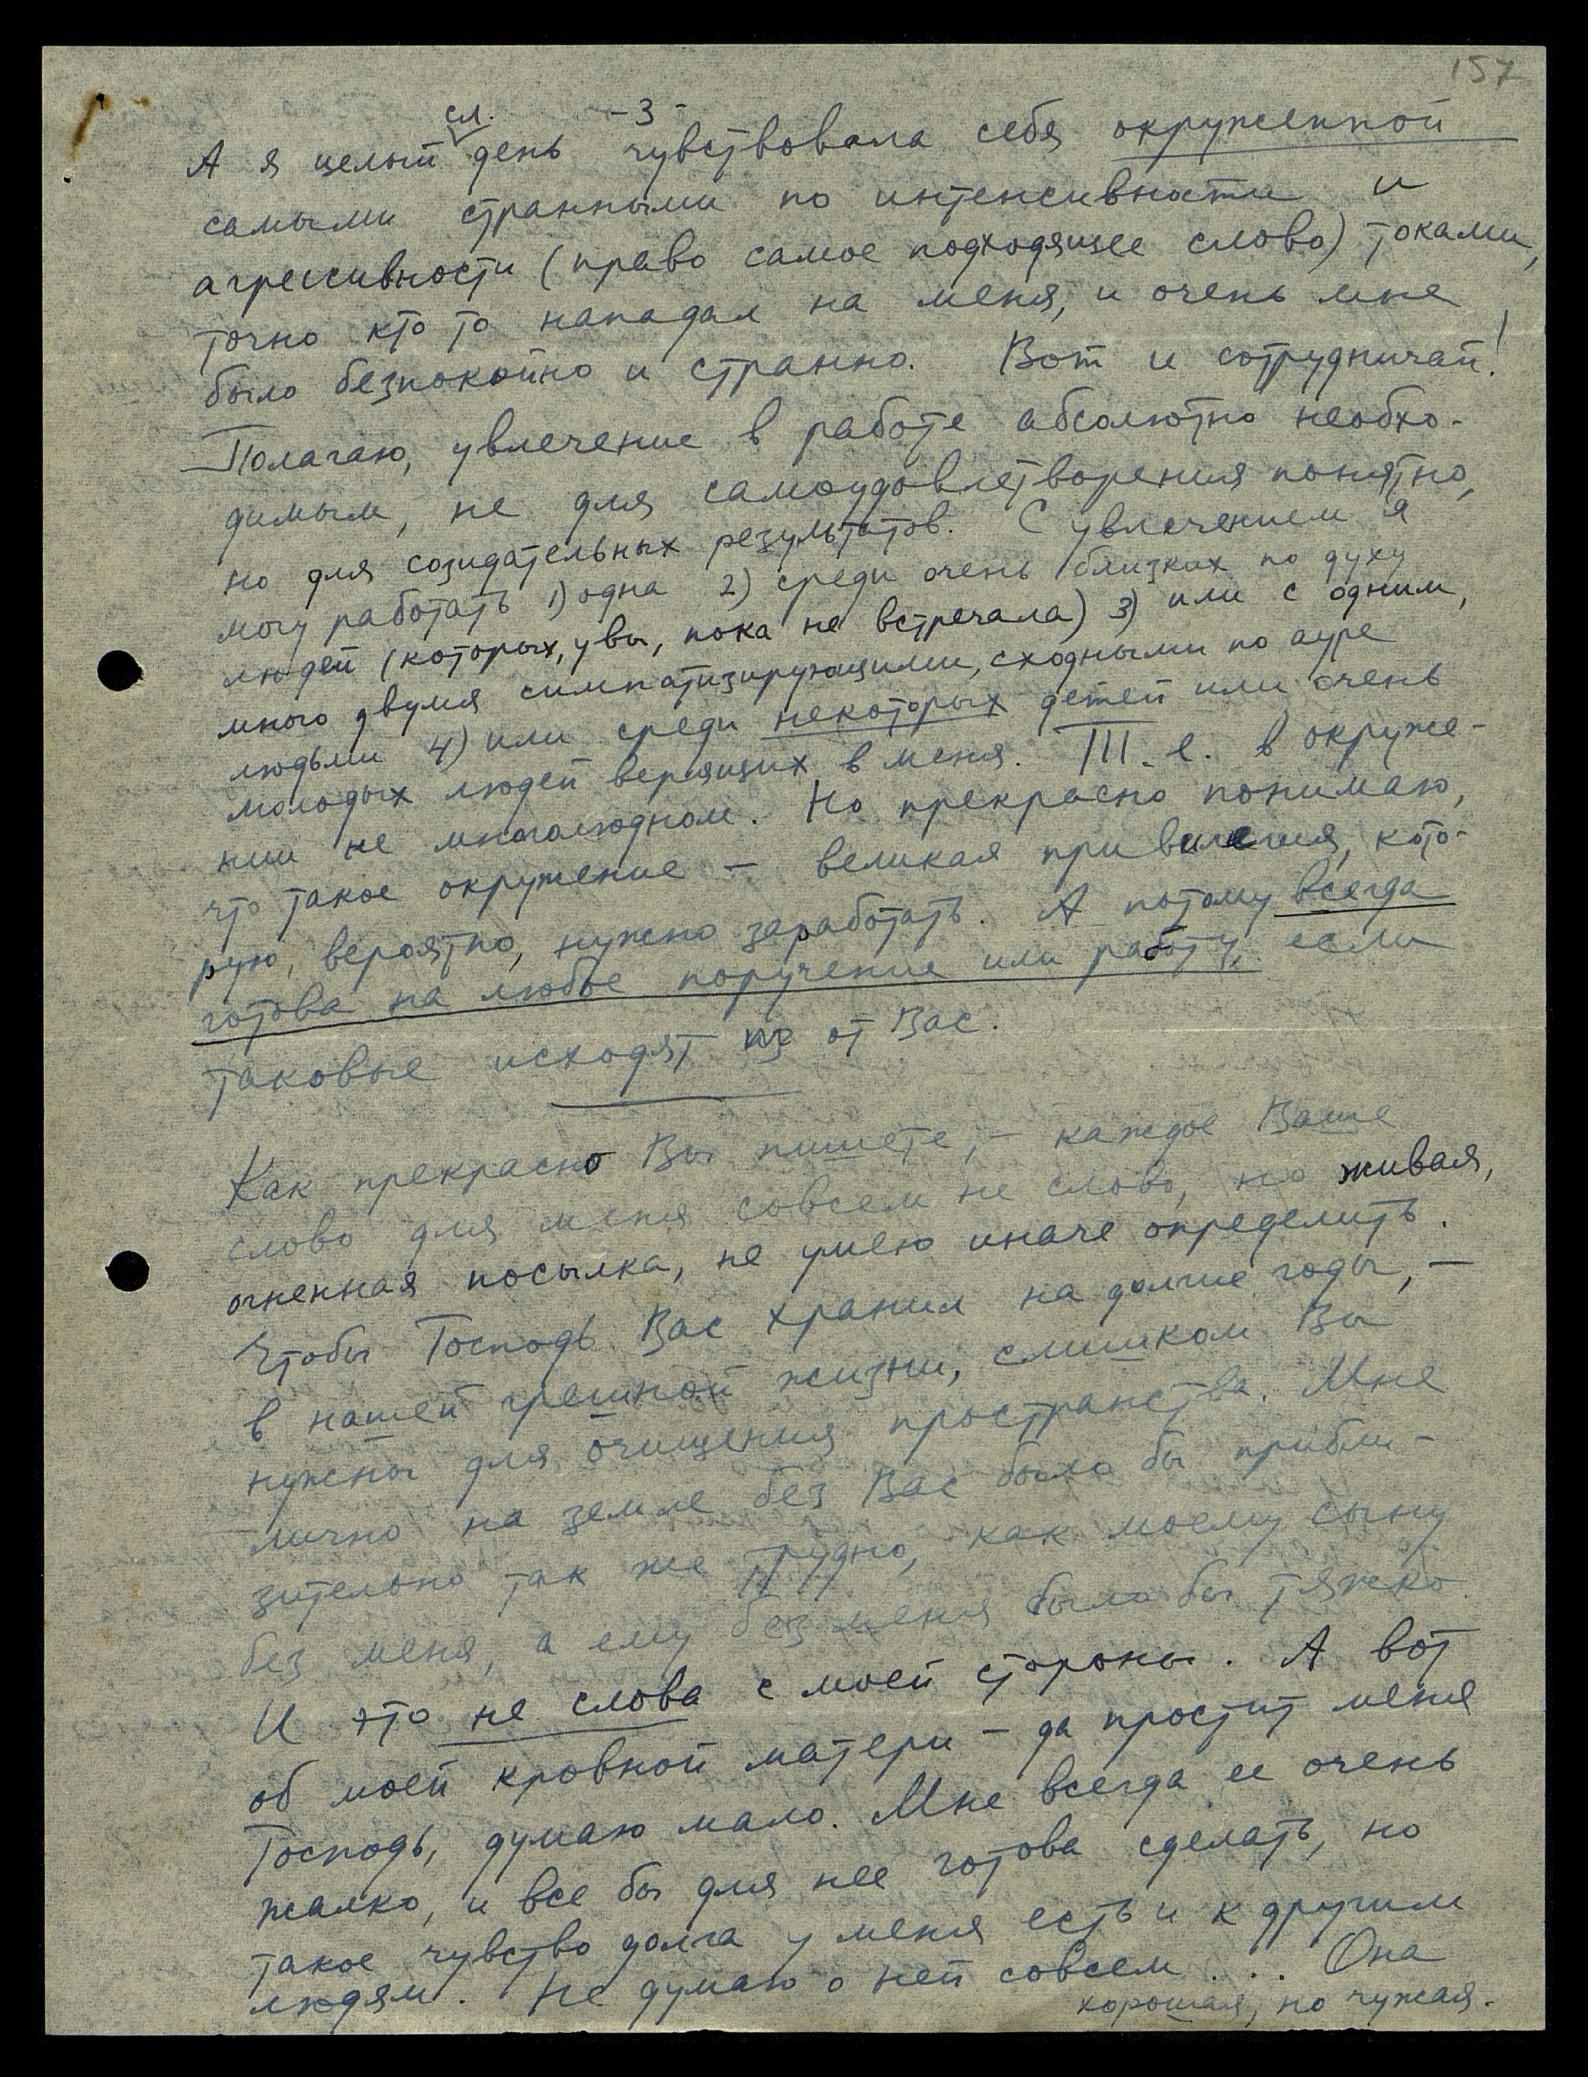 157
-3-
А я целый сл. день чувствовала себя окруженной
самыми странными по интенсивности и
агрессивности (право самое подходящее слово) токами,
точно кто то нападал на меня, и очень мне
было безпокойно и странно. Вот и сотрудничай!
Полагаю, увлечение в работе абсолютно необхо-
димым, не для самоудовлетворения понятно,
но для созидательных результатов. С увлечением я
могу работать 1) одна 2) среди очень близких по духу
людей (которых, увы, пока не встречала) 3) или с одним,
много двумя симпатизирующими, сходными по ауре
людьми 4) или среди некоторых детей или очень
молодых людей верящих в меня. Т.е. в окруже-
нии не многолюдном. Но прекрасно понимаю,
что такое окружение — великая привилегия, кото-
рую, вероятно, нужно заработать. А потому всегда
готова на любое поручение или работу, если
таковые исходят из от Вас.
Как прекрасно Вы пишете, — каждое Ваше
слово для меня совсем не слово, но живая,
огненная посылка, не умею иначе определить.
Чтобы Господь Вас хранил на долгие годы, —
в нашей грешной жизни, слишком Вы
нужны для очищения пространства. Мне
лично на земле без Вас было бы прибли-
зительно так же трудно, как моему сыну
без меня, а ему без меня было бы тяжко.
И это не слова с моей стороны. А вот
об моей кровной матери — да простит меня
Господь, думаю мало. Мне всегда ее очень
жалко, и все бы для нее готова сделать, но
такое чувство долга у меня есть и к другим
людям. Не думаю о ней совсем... Она
хорошая, но чужая.